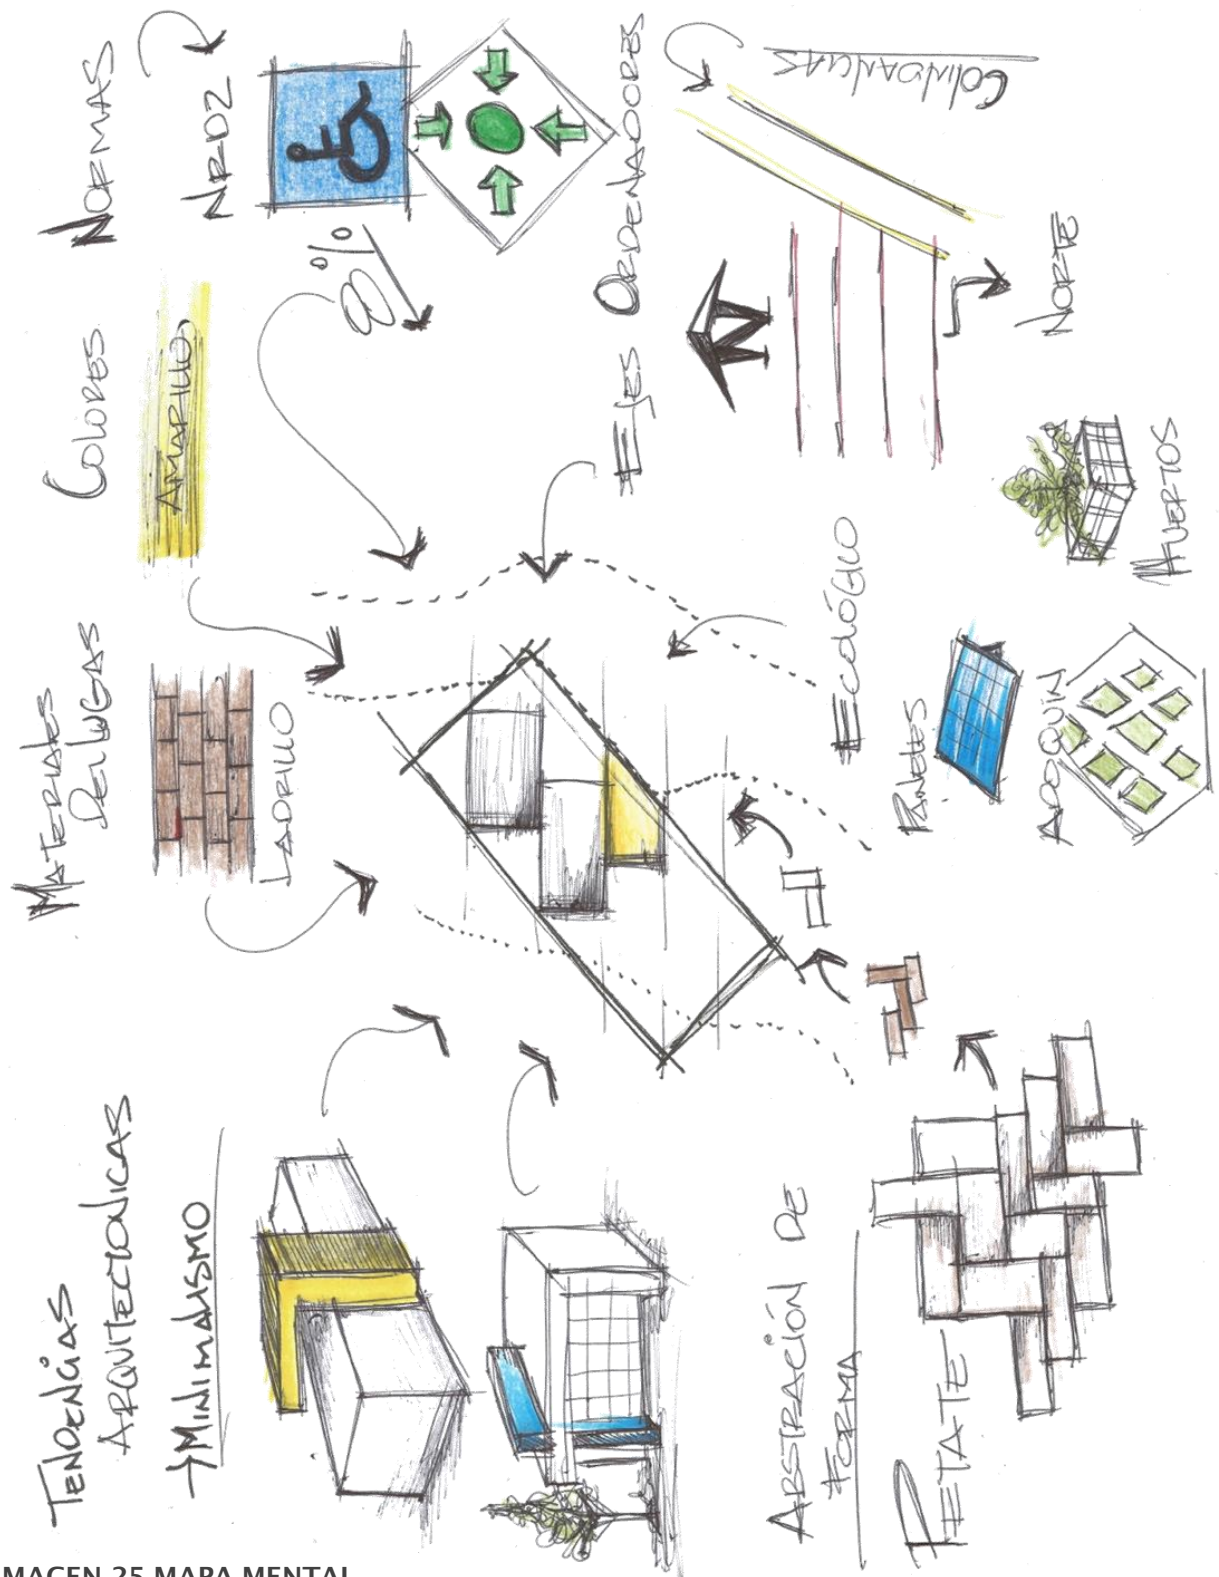 TENDENCIAS
ARQUITECTONICAS
→ MINIMALISMO
MATERIALES
DEL LUGAR
LADRILLO
COLORES
AMARILLO
NORMAS
NRD2
8%
EJES ORDENADORES
COLINDANCIAS
NORTE
ECOLÓGICO
PANELES
ADOQUIN
HUERTOS
ABSTRACIÓN DE
FORMA
PETATE
IMAGEN 25 MAPA MENTAL